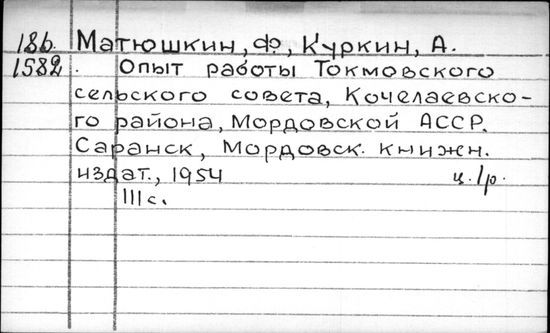 186. Матюшкин, Ф., Куркин, А.
1582. Опыт работы Токмовского
сельского совета, Кочелаевско-
го района, Мордовской АССР.
Саранск, Мордовск. книжн.
издат., 1954 ц. 1р.
111 с.